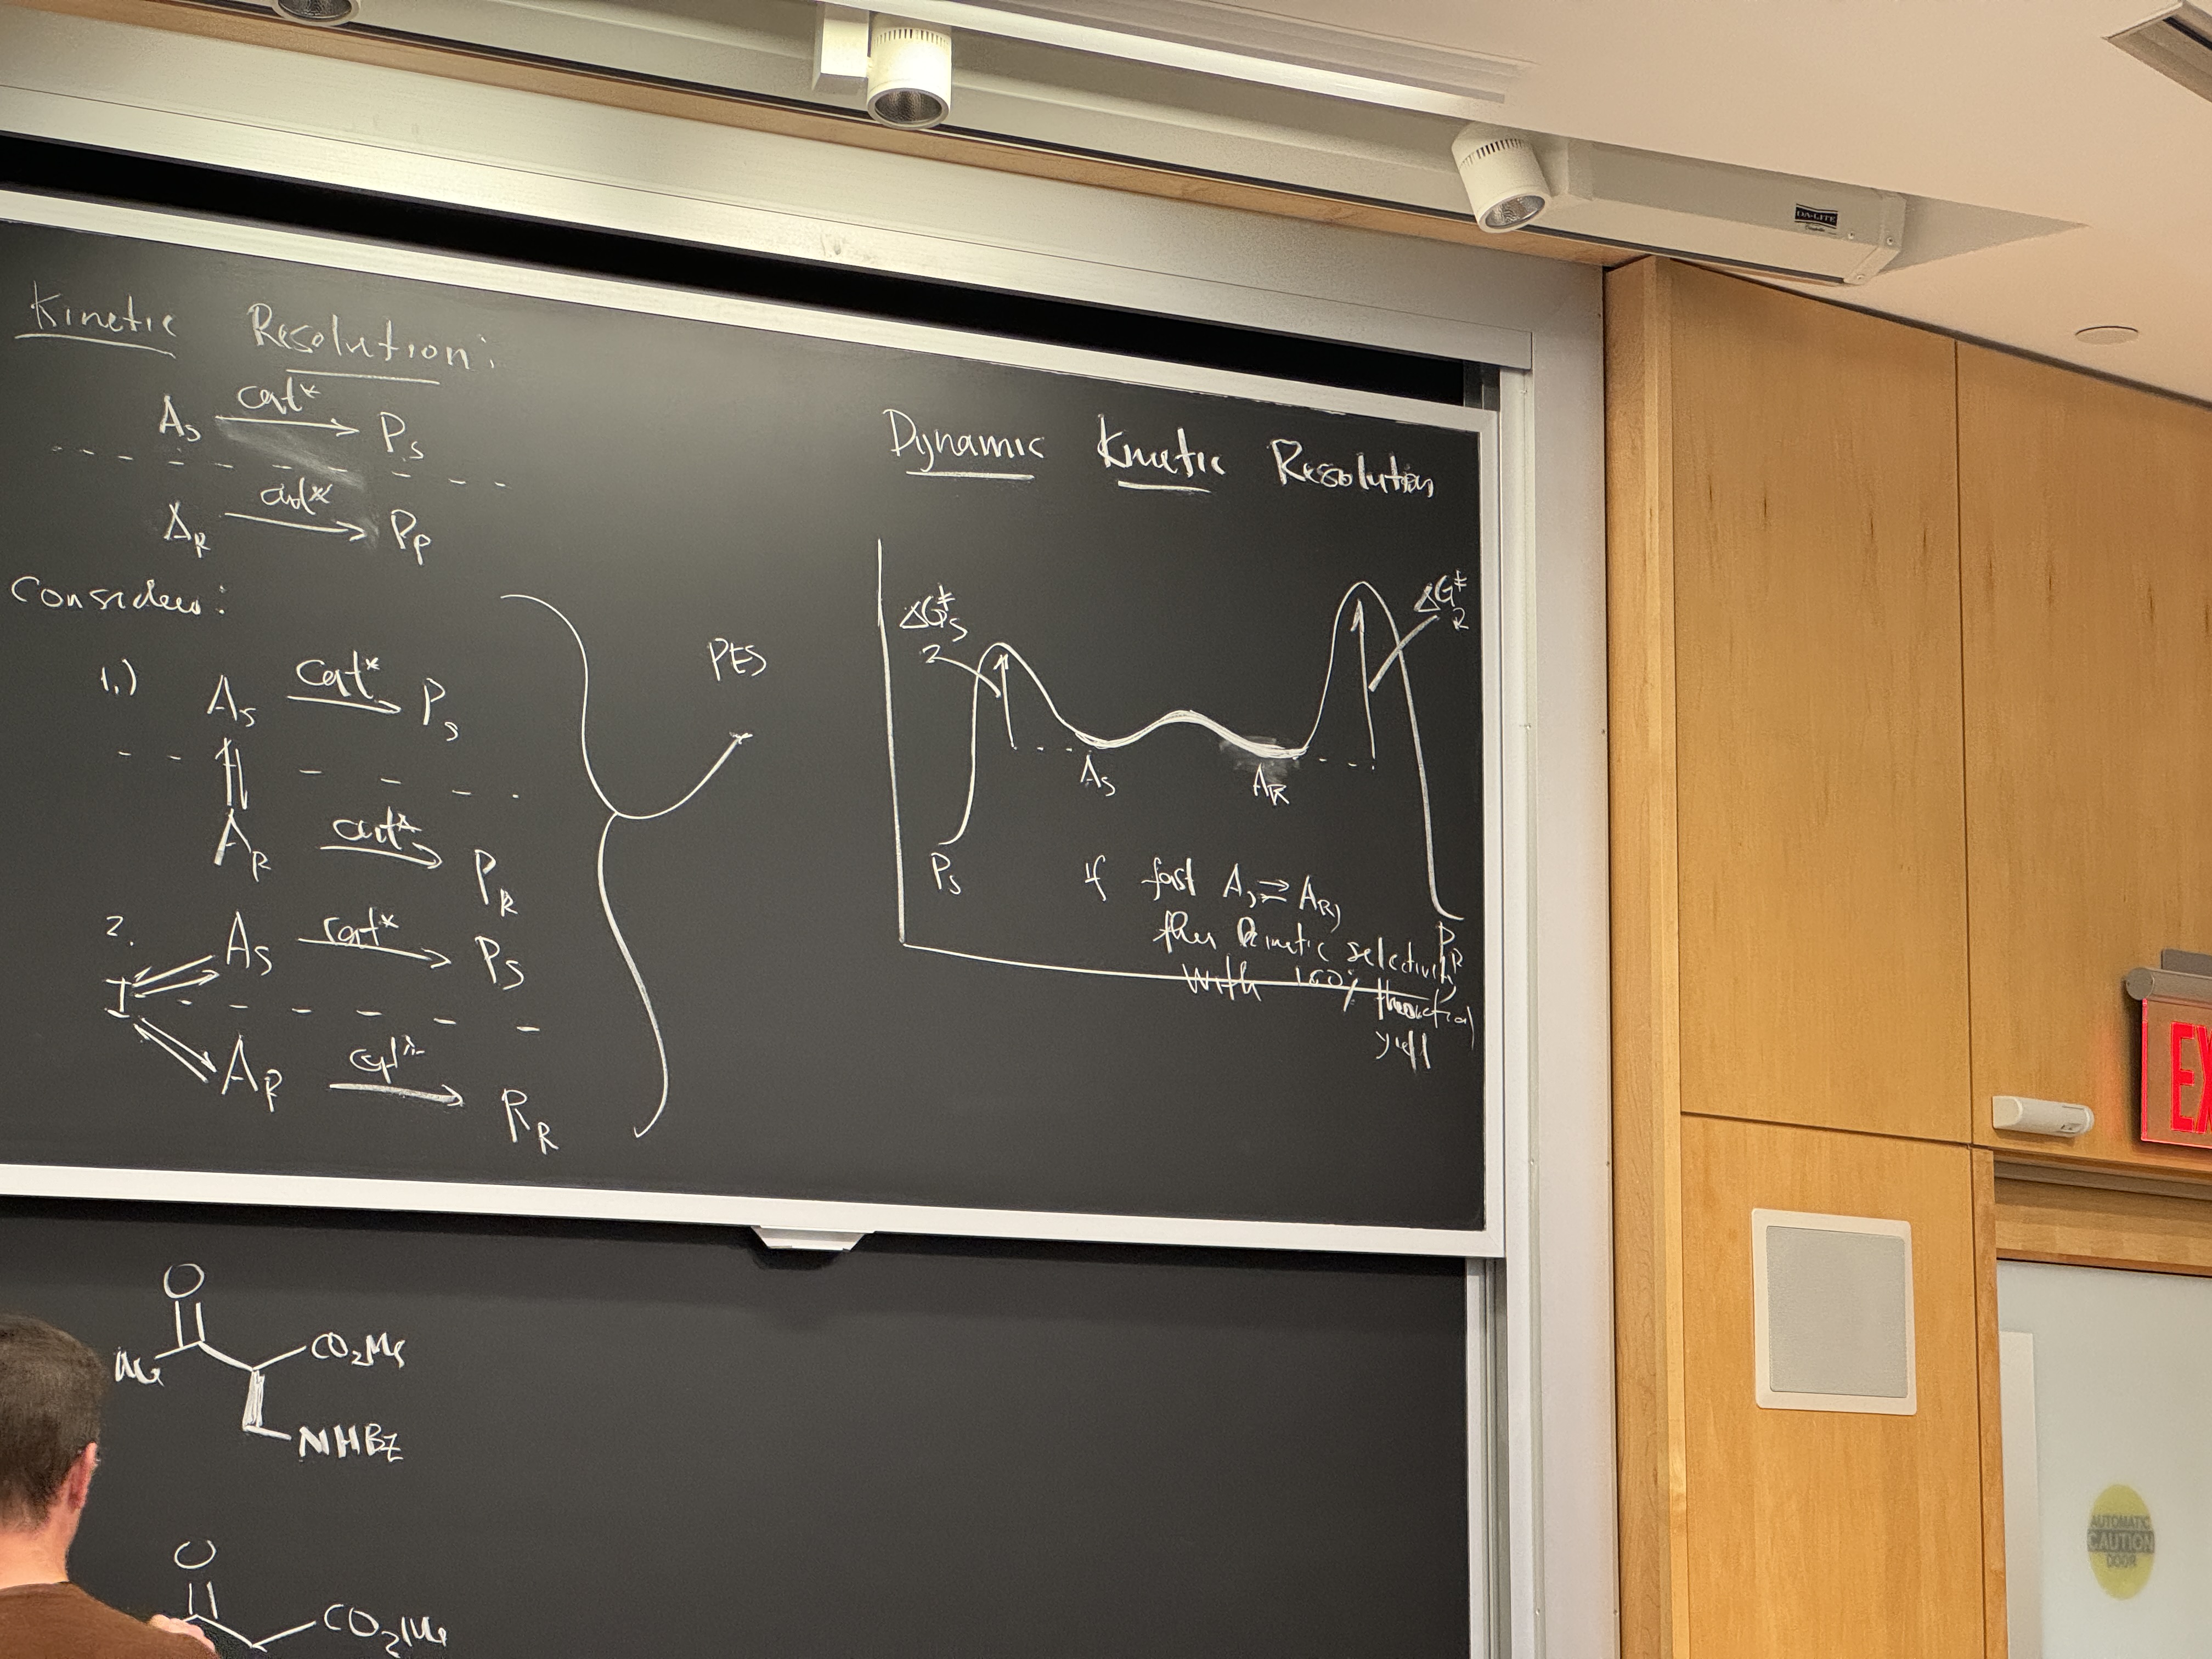 Kinetic Resolution:
A_S cat* → P_S
A_R cat* → P_R
Consider:
1.) A_S cat* → P_S
⇅
A_R cat* → P_R
2. A_S cat* → P_S
I
A_R cat* → R_R
PES
Dynamic Kinetic Resolution
ΔG‡_S
ΔG‡_R
A_S
A_R
P_S
P_R
if fast A_S ⇌ A_R,
then kinetic selectivity
with 100% theoretical
yield
O
Me
CO₂Me
NHBz
O
CO₂Me
DA-LITE
EX
AUTOMATIC
CAUTION
DOOR